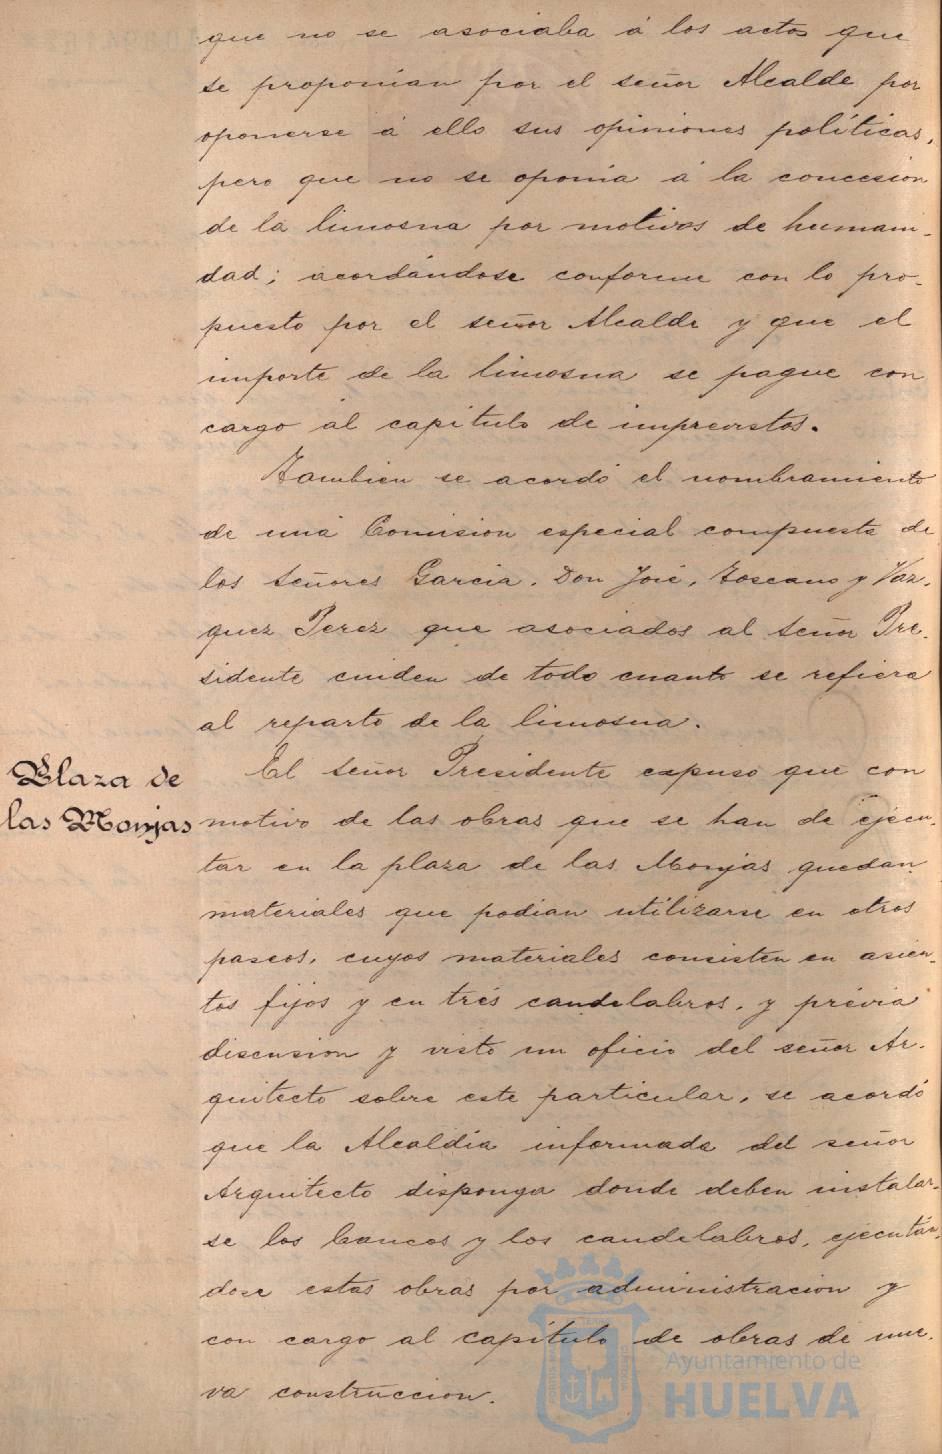 que no se asociaba á los actos que
se proponian por el señor Alcalde por
oponerse á ello sus opiniones políticas,
pero que no se oponia á la concesion
de la limosna por motivos de humani-
dad; acordándose conforme con lo pro-
puesto por el señor Alcalde y que el
importe de la limosna se pague con
cargo al capitulo de imprevistos.
Tambien se acordó el nombramiento
de una Comision especial compuesta de
los señores Garcia, Don José, Toscano y Vaz-
quez Perez que asociados al señor Pre-
sidente cuiden de todo cuanto se refiera
al reparto de la limosna.
Plaza de
las Monjas
El señor Presidente expuso que con
motivo de las obras que se han de ejecu-
tar en la plaza de las Monjas quedan
materiales que podian utilizarse en otros
paseos, cuyos materiales consisten en asien-
tos fijos y en trés candelabros, y prévia
discusion y visto un oficio del señor Ar-
quitecto sobre este particular, se acordó
que la Alcaldia informada del señor
Arquitecto disponga donde deben instalar-
se los bancos y los candelabros, ejecután-
dose estas obras por administracion y
con cargo al capítulo de obras de nue-
va construccion.
Ayuntamiento de
HUELVA